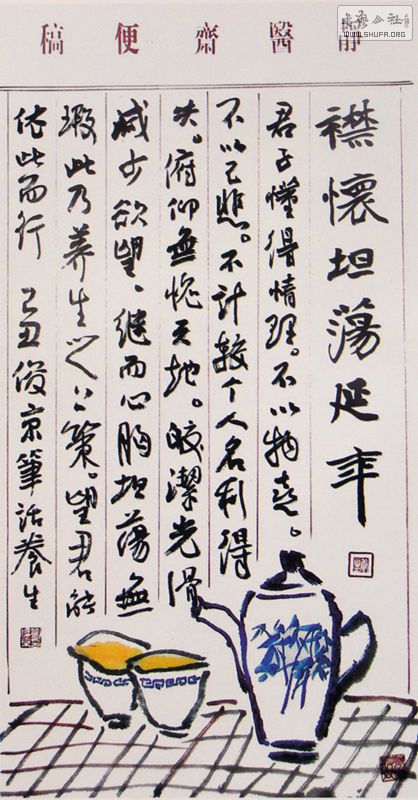 書藝公社
WWW.SHUFA.ORG
靜醫齋便稿
襟懷坦蕩延年
君子懂得情理。不以物喜。
不以己悲。不計較个人名利得
失。俯仰無愧天地。皎潔光滑
減少欲望、繼而心胸坦蕩無
瑕此乃養生之上策。望君能
依此而行 己丑俊京筆話養生